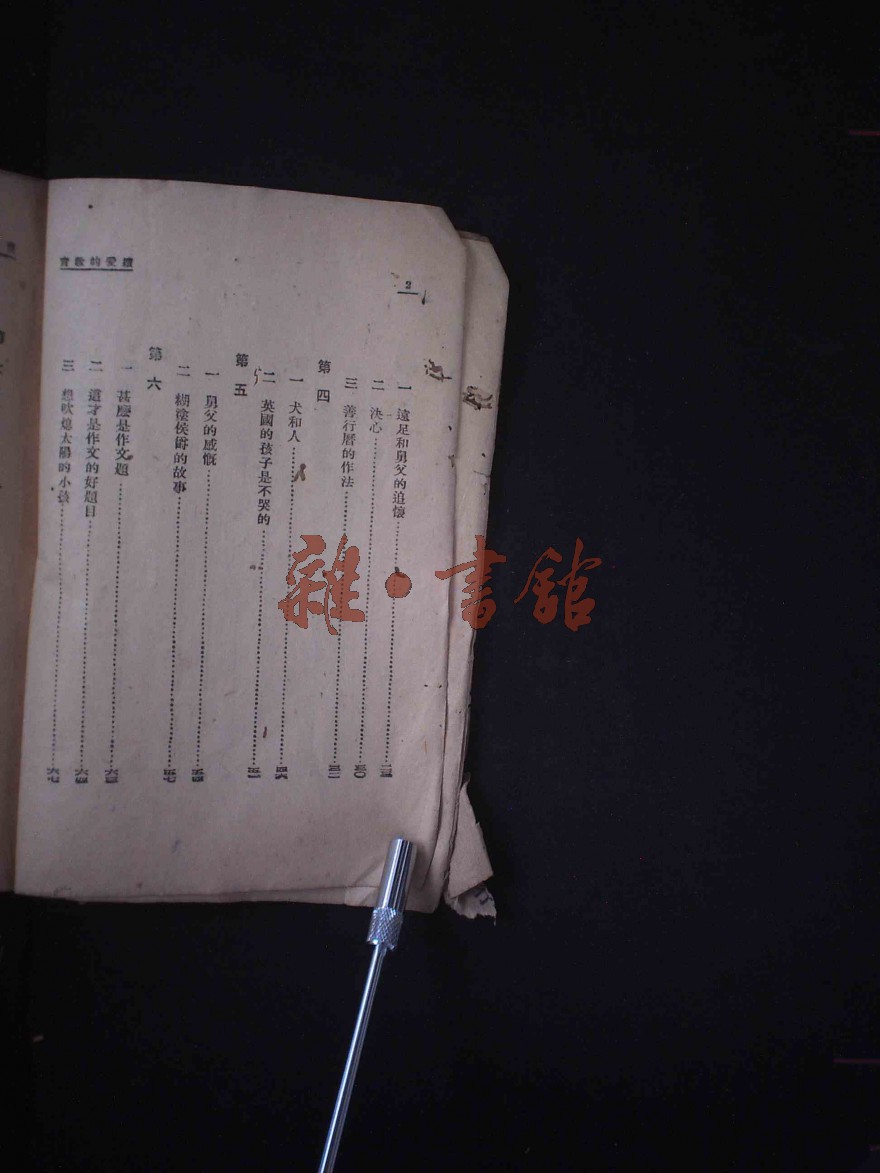 續愛的教育
2
一 遠足和舅父的追懷……二五
二 決心……三〇
三 善行曆的作法……三二
第四
一 犬和人……四六
二 英國的孩子是不哭的……五一
第五
一 舅父的感慨……五四
二 糊塗侯爵的故事……五七
第六
一 甚麼是作文題……六三
二 這才是作文的好題目……六四
三 想吹熄太陽的小孩……六七
雜·書館